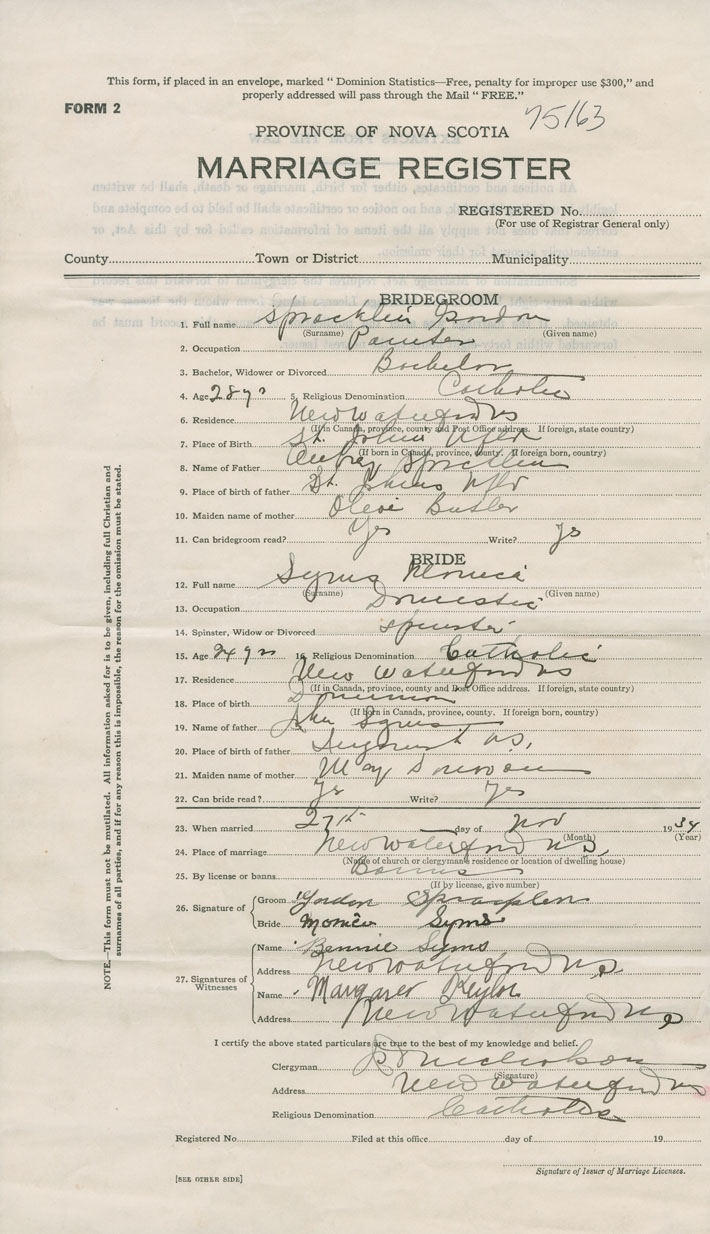 This form, if placed in an envelope, marked " Dominion Statistics—Free, penalty for improper use $300," and
properly addressed will pass through the Mail " FREE."
FORM 2
75163
PROVINCE OF NOVA SCOTIA
MARRIAGE REGISTER
REGISTERED No.
(For use of Registrar General only)
County Town or District Municipality
BRIDEGROOM
1. Full name Spracklin Gordon
(Surname) (Given name)
2. Occupation Painter
3. Bachelor, Widower or Divorced Bachelor
4. Age 28 yrs 5. Religious Denomination Catholic
6. Residence New Waterford NS
(If in Canada, province, county and Post Office address. If foreign, state country)
7. Place of Birth St. Johns Nfld
(If born in Canada, province, county. If foreign born, country)
8. Name of Father Aubrey Spracklin
9. Place of birth of father St. Johns Nfld
10. Maiden name of mother Butler
11. Can bridegroom read? Yes Write? Yes
BRIDE
12. Full name Syms Monica
(Surname) (Given name)
13. Occupation Domestic
14. Spinster, Widow or Divorced Spinster
15. Age 24 yrs 16. Religious Denomination Catholic
17. Residence New Waterford NS
(If in Canada, province, county and Post Office address. If foreign, state country)
18. Place of birth Dominion
(If born in Canada, province, county. If foreign born, country)
19. Name of father John Syms
20. Place of birth of father N.S.
21. Maiden name of mother May
22. Can bride read? Yes Write? Yes
23. When married 27th day of Nov 1934
(Month) (Year)
24. Place of marriage New Waterford N.S.
(Name of church or clergyman's residence or location of dwelling house)
25. By license or banns Banns
(If by license, give number)
26. Signature of Groom Gordon Spracklin
Bride Monica Syms
27. Signatures of Witnesses Name Bennie Syms
Address New Waterford N.S.
Name Margaret
Address New Waterford N.S.
I certify the above stated particulars are true to the best of my knowledge and belief.
Clergyman Nicholson
(Signature)
Address New Waterford NS
Religious Denomination Catholic
Registered No. Filed at this office day of 19
Signature of Issuer of Marriage Licenses.
[SEE OTHER SIDE]
NOTE.—This form must not be mutilated. All information asked for is to be given, including full Christian and
surnames of all parties, and if for any reason this is impossible, the reason for the omission must be stated.